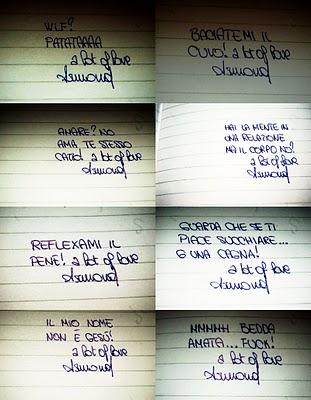 WLF?
PATATAAAA
a lot of love
BACIATEMI IL
CULO! a lot of love
AMARE? NO
AMA TE STESSO
CAZZO! a lot of love
HAI LA MENTE IN
UNA RELAZIONE
MA IL CORPO NO!
a lot of love
REFLEXAMI IL
PENE! a lot of love
GUARDA CHE SE TI
PIACE SUCCHIARE...
È UNA CAGNA!
a lot of love
IL MIO NOME
NON È GESÙ!
a lot of love
BEDDA
AMATA... FUCK!
a lot of love